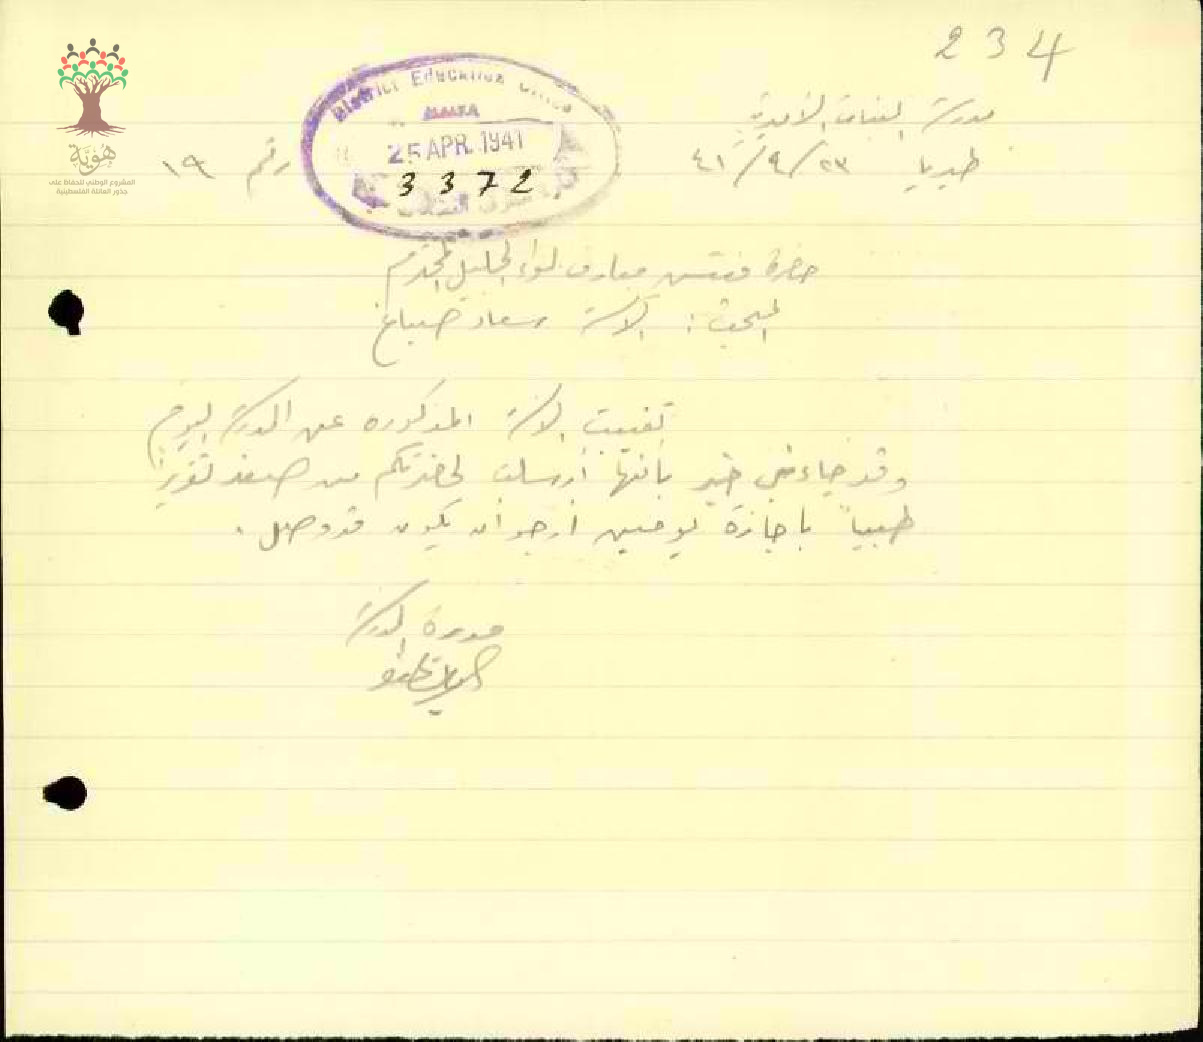 234
مدرسة البنات الأميرية
طبريا ٢٣/٩/٤١
رقم ١٩
District Education Office
HAIFA
25 APR. 1941
3372
هوية
المشروع الوطني للحفاظ على
جذور العائلة الفلسطينية
حضرة مفتش معارف لواء الجليل المحترم
المبحث : الآنسة سعاد صباغ
تغيبت الآنسة المذكورة عن المدرسة اليوم
وقد جاءني خبر بأنها أرسلت لحضرتكم من صفد تقريراً
طبياً باجازة يومين أرجو أن يكون قد وصل .
مديرة المدرسة